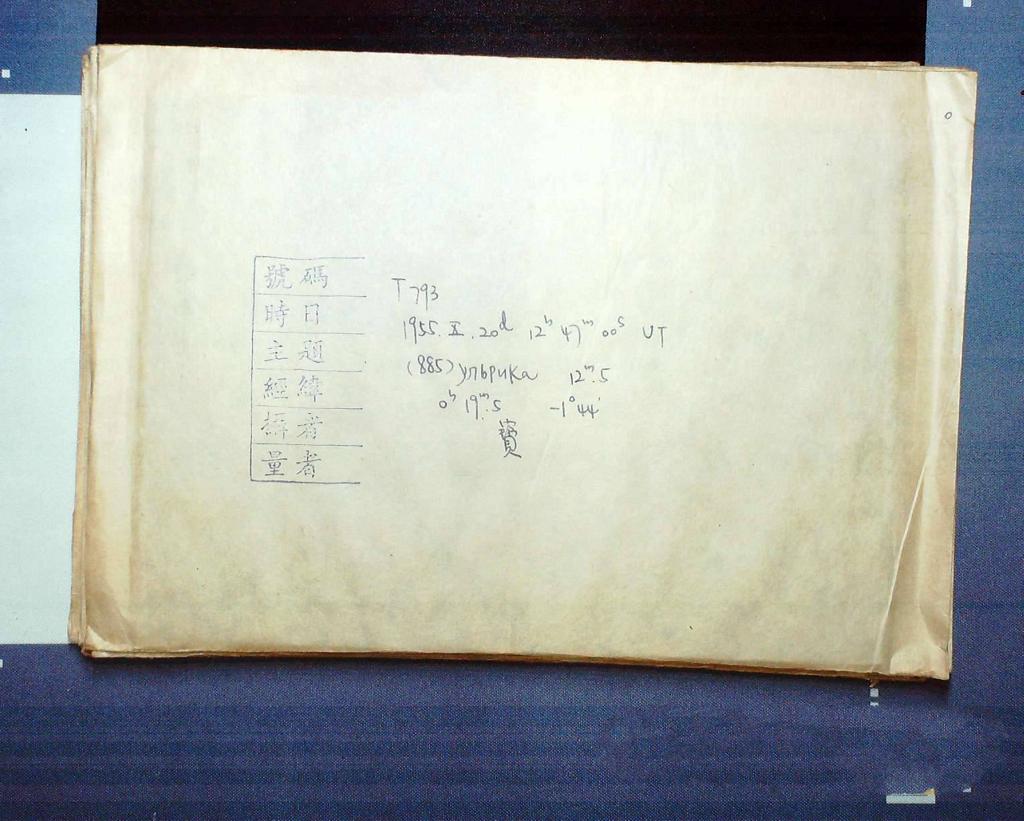 號碼 T793
時日 1955.II.20d 12h 47m 00s UT
主題 (885) Ульрика 12m.5
經緯 0h 19m.5 -1°44'
攝者
量者